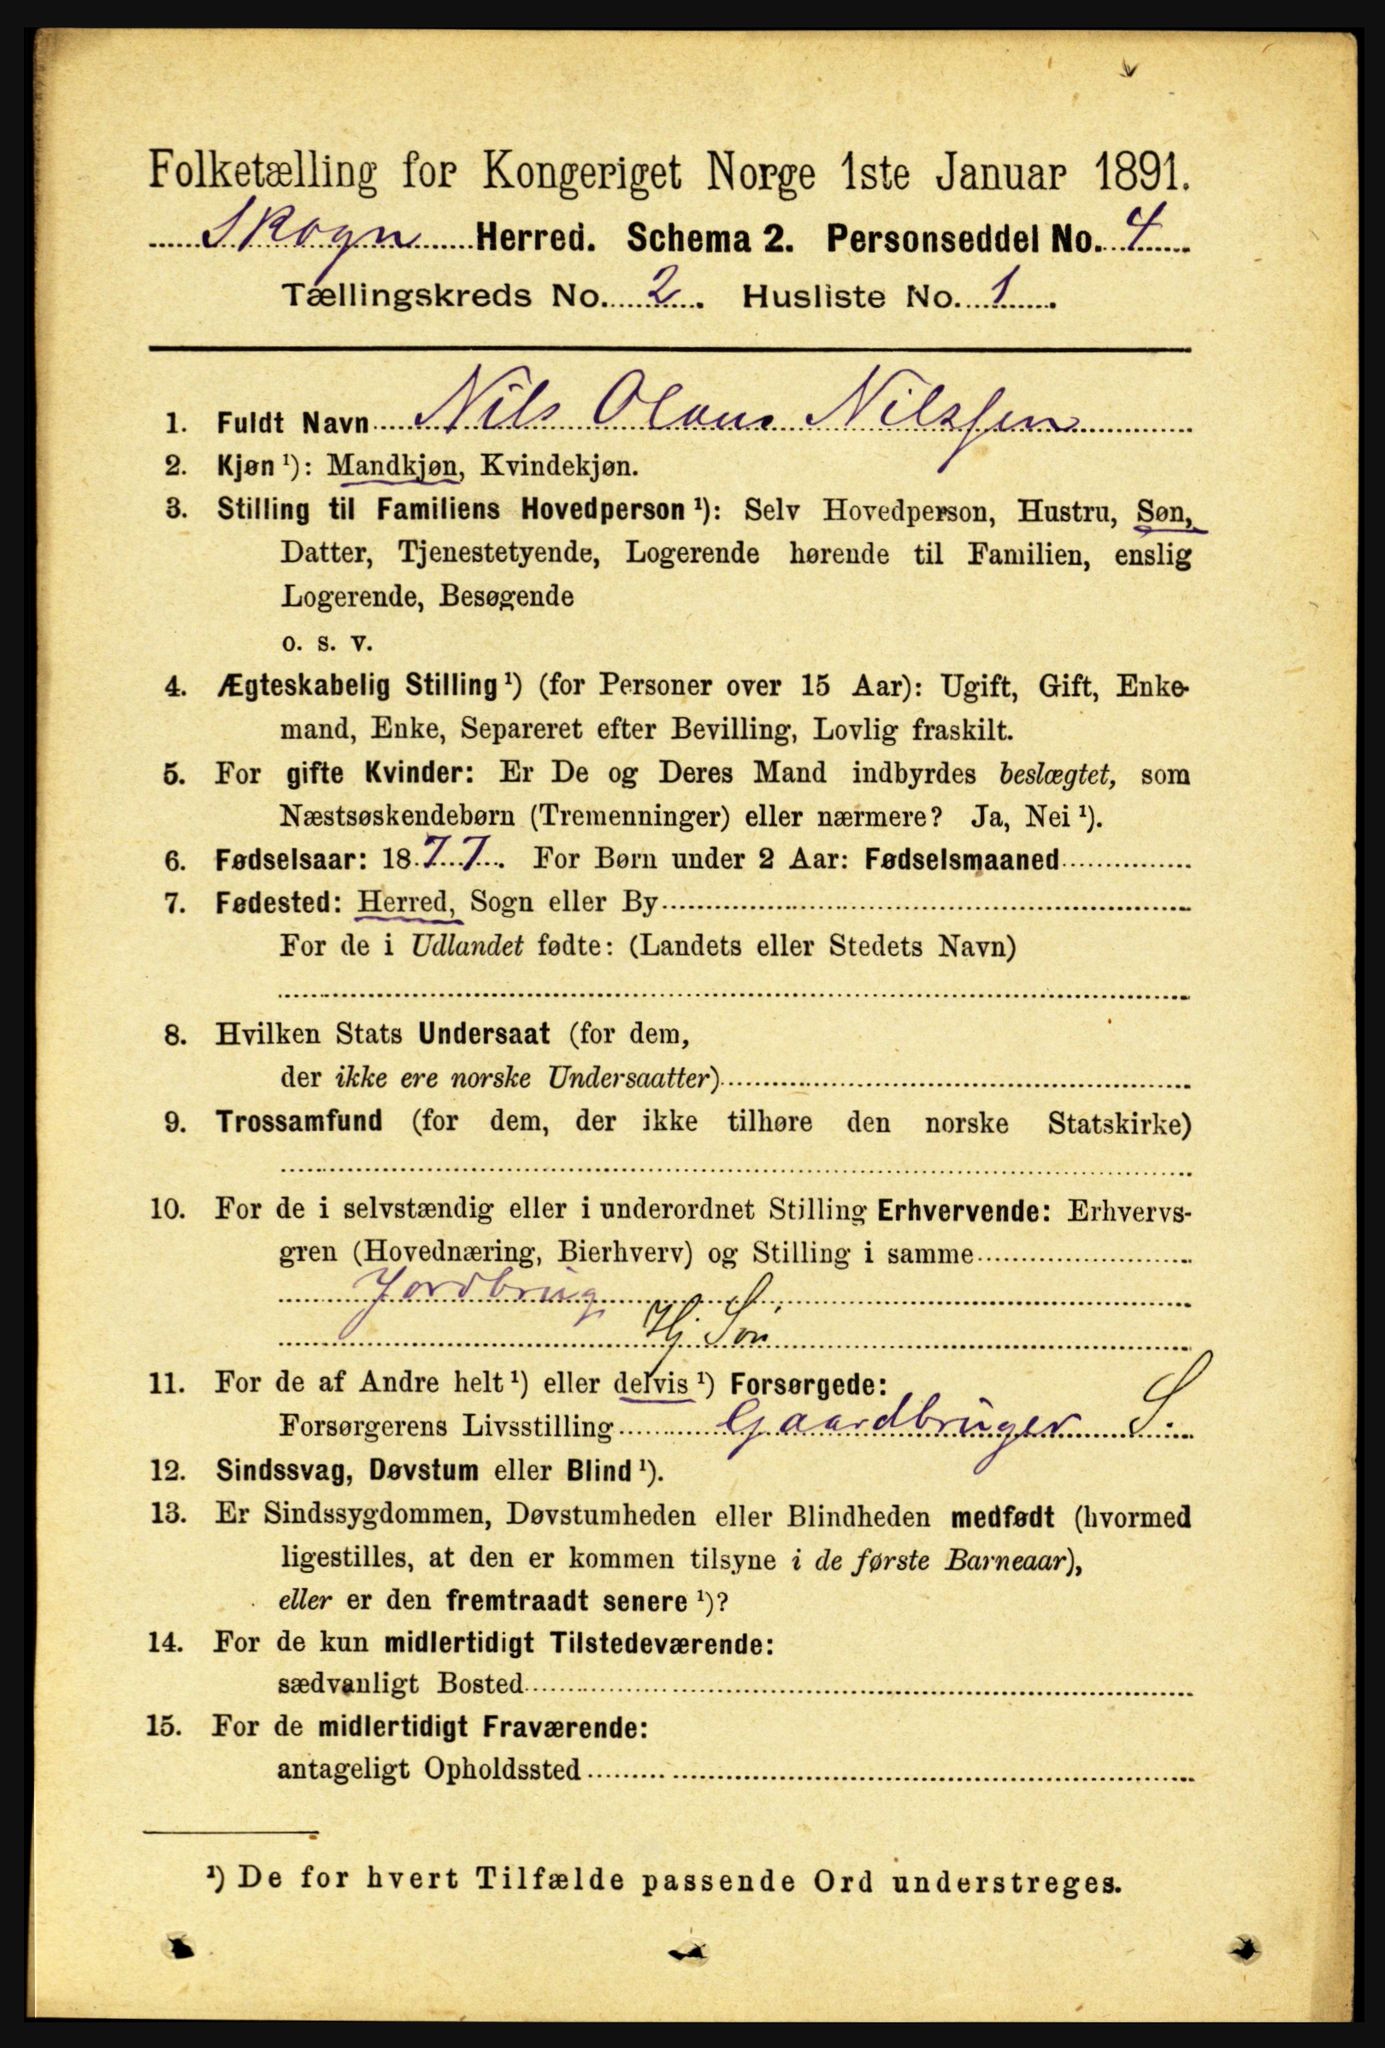 Folketælling for Kongeriget Norge 1ste Januar 1891.
Skogn Herred. Schema 2. Personseddel No. 4
Tællingskreds No. 2. Husliste No. 1.
1. Fuldt Navn Nils Olaus Nilssen
2. Kjøn ¹): Mandkjøn, Kvindekjøn.
3. Stilling til Familiens Hovedperson ¹): Selv Hovedperson, Hustru, Søn,
Datter, Tjenestetyende, Logerende hørende til Familien, enslig
Logerende, Besøgende
o. s. v.
4. Ægteskabelig Stilling ¹) (for Personer over 15 Aar): Ugift, Gift, Enke-
mand, Enke, Separeret efter Bevilling, Lovlig fraskilt.
5. For gifte Kvinder: Er De og Deres Mand indbyrdes beslægtet, som
Næstsøskendebørn (Tremenninger) eller nærmere? Ja, Nei ¹).
6. Fødselsaar: 1877. For Børn under 2 Aar: Fødselsmaaned
7. Fødested: Herred, Sogn eller By
For de i Udlandet fødte: (Landets eller Stedets Navn)
8. Hvilken Stats Undersaat (for dem,
der ikke ere norske Undersaatter)
9. Trossamfund (for dem, der ikke tilhøre den norske Statskirke)
10. For de i selvstændig eller i underordnet Stilling Erhvervende: Erhvervs-
gren (Hovednæring, Bierhverv) og Stilling i samme
Jordbrug
Hj. Søn
11. For de af Andre helt ¹) eller delvis ¹) Forsørgede:
Forsørgerens Livsstilling Gaardbruger S.
12. Sindssvag, Døvstum eller Blind ¹).
13. Er Sindssygdommen, Døvstumheden eller Blindheden medfødt (hvormed
ligestilles, at den er kommen tilsyne i de første Barneaar),
eller er den fremtraadt senere ¹)?
14. For de kun midlertidigt Tilstedeværende:
sædvanligt Bosted
15. For de midlertidigt Fraværende:
antageligt Opholdssted
¹) De for hvert Tilfælde passende Ord understreges.